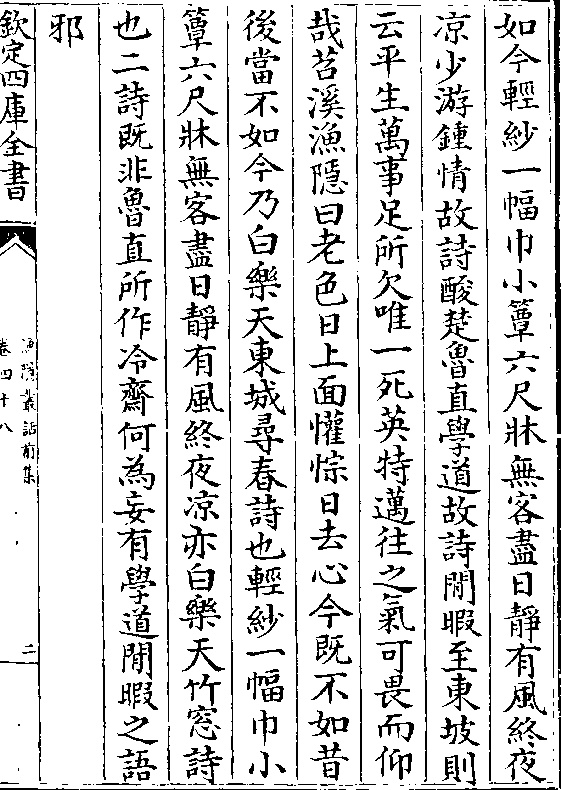 如今輕紗一幅巾小簟六尺牀無客盡日靜有風終夜
凉少游鍾情故詩酸楚魯直學道故詩閒暇至東坡則
云平生萬事足所欠唯一死英特邁往之氣可畏而仰
哉苕溪漁隱曰老色日上面懽悰日去心今既不如昔
後當不如今乃白樂天東城尋春詩也輕紗一幅巾小
簟六尺牀無客盡日靜有風終夜凉亦白樂天竹窓詩
也二詩既非魯直所作冷齋何為妄有學道閒暇之語
邪
欽定四庫全書
漁隱叢話前集
卷四十八
二